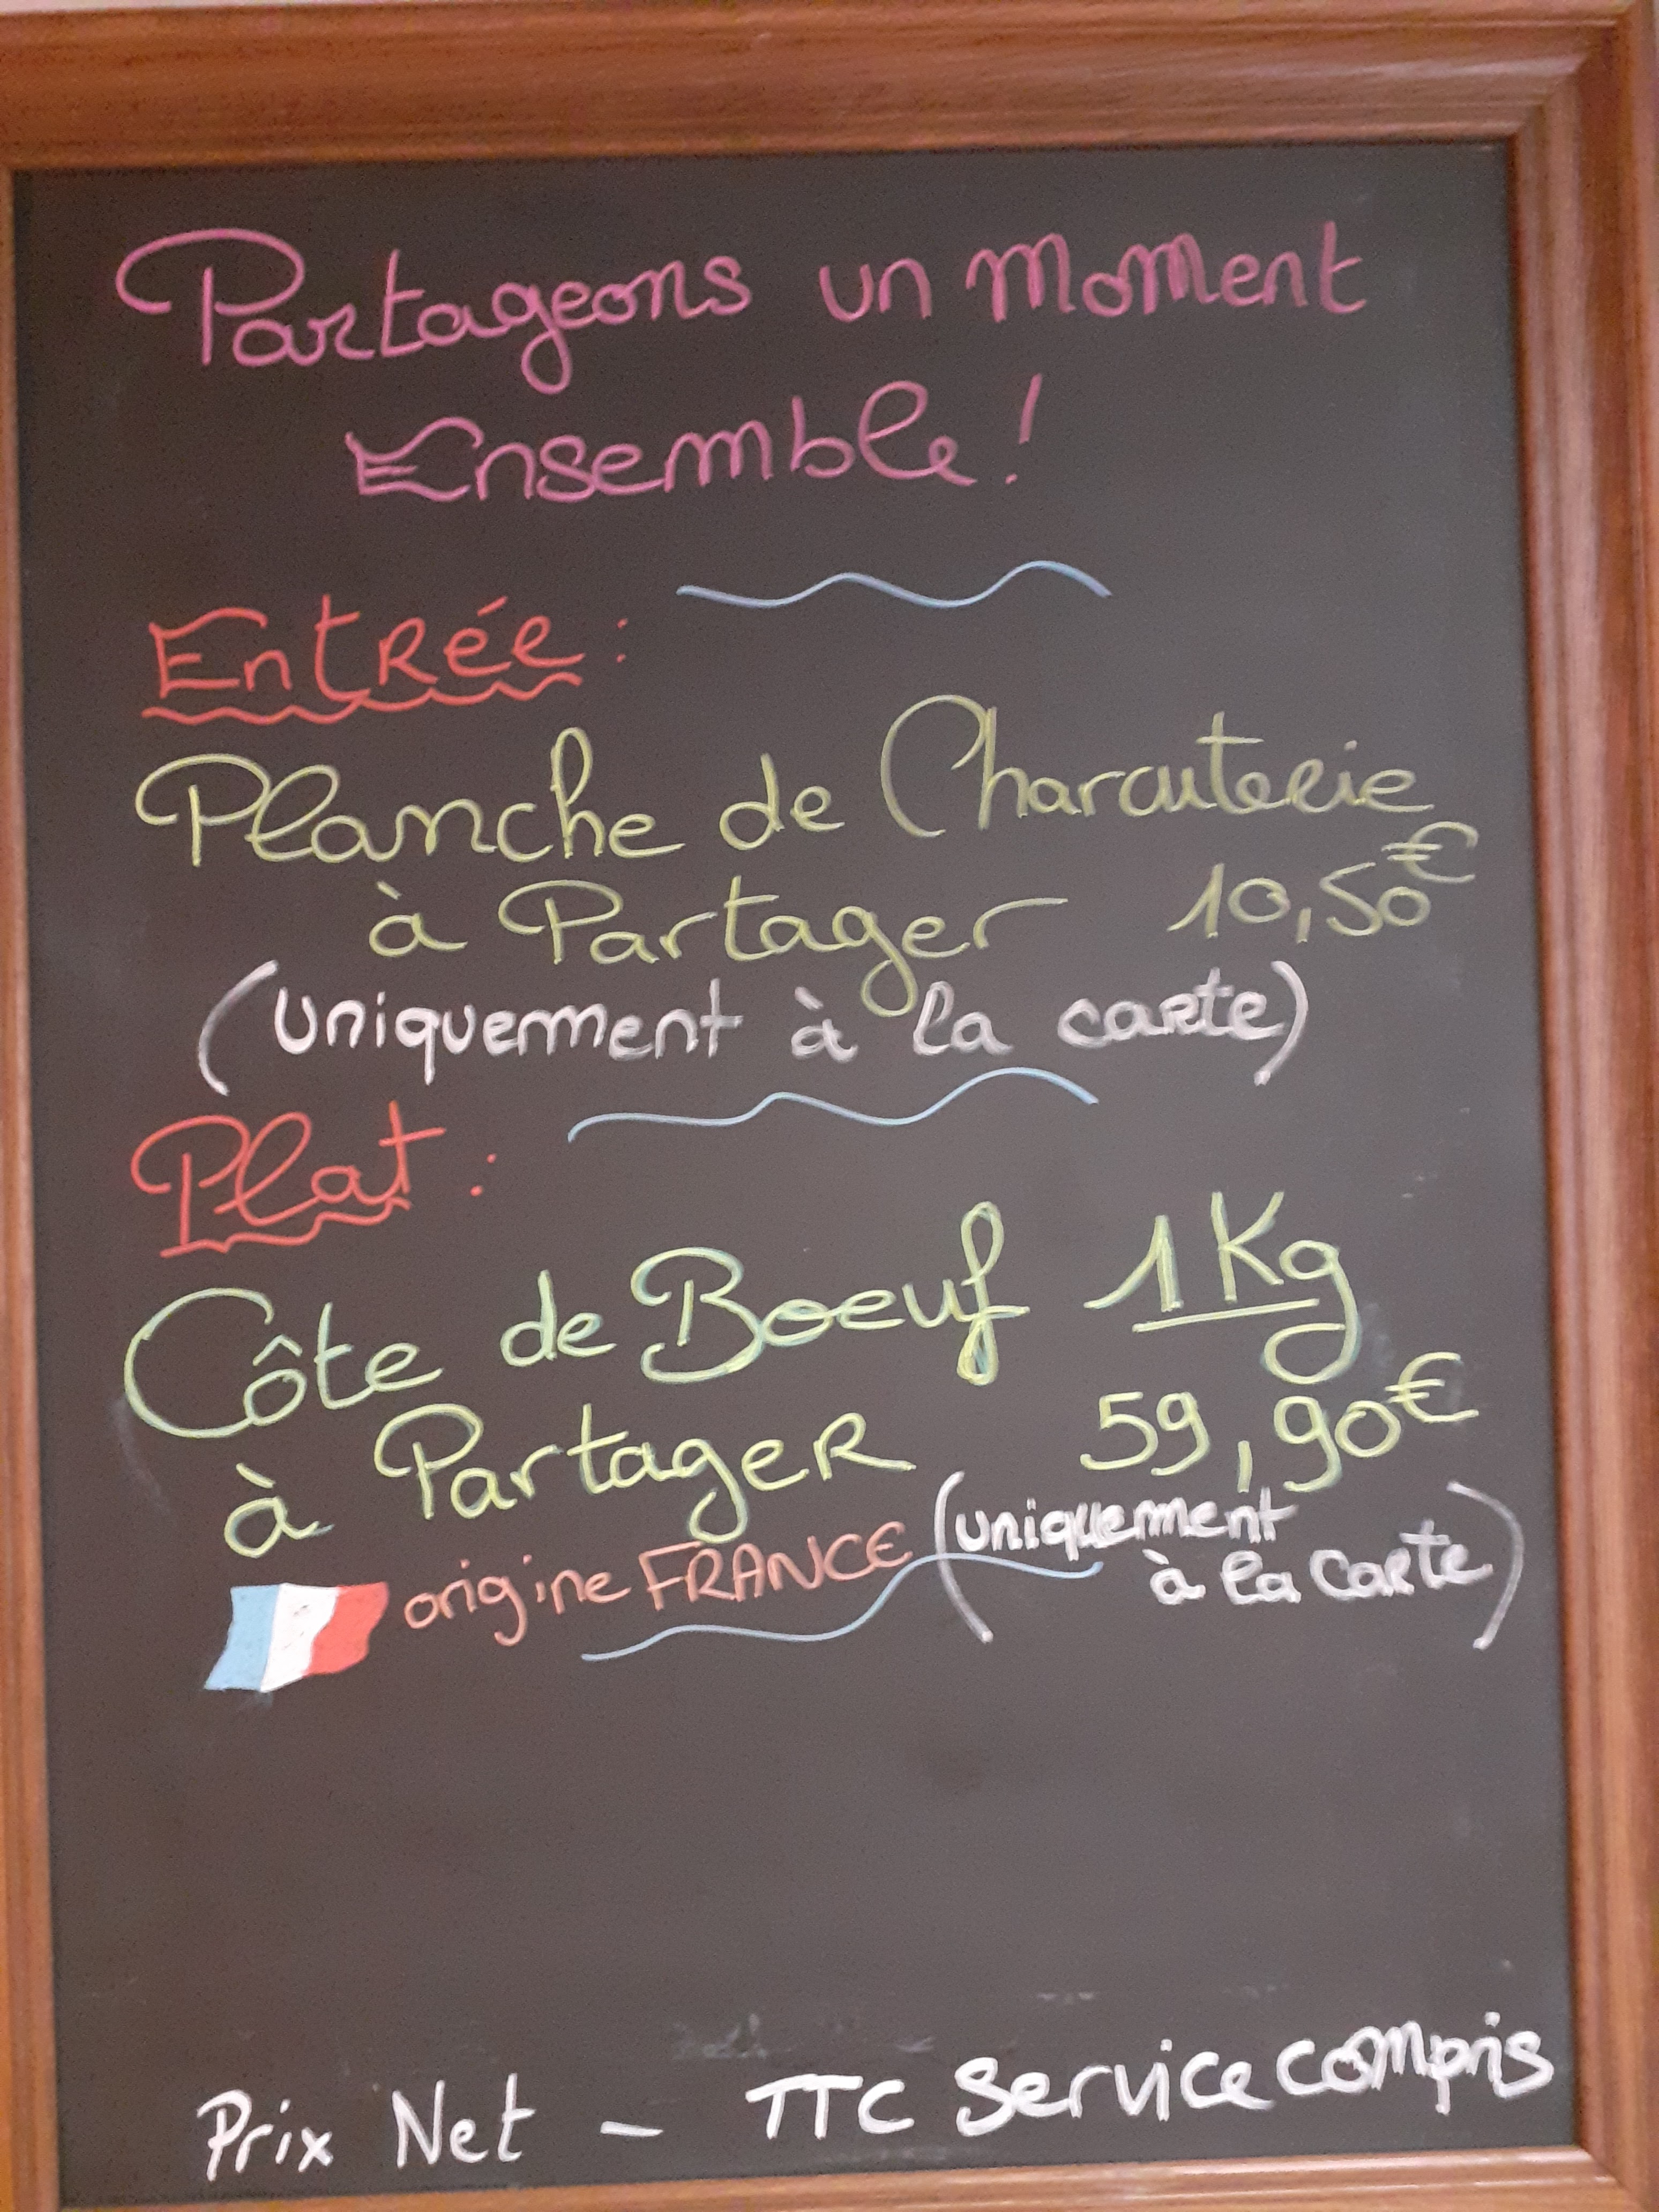 Partageons un moment
Ensemble !
Entrée :
Planche de Charcuterie
à Partager 10,50€
(uniquement à la carte)
Plat :
Côte de Boeuf 1Kg
à Partager 59,90€
origine FRANCE (uniquement
à la carte)
Prix Net - TTC Service compris